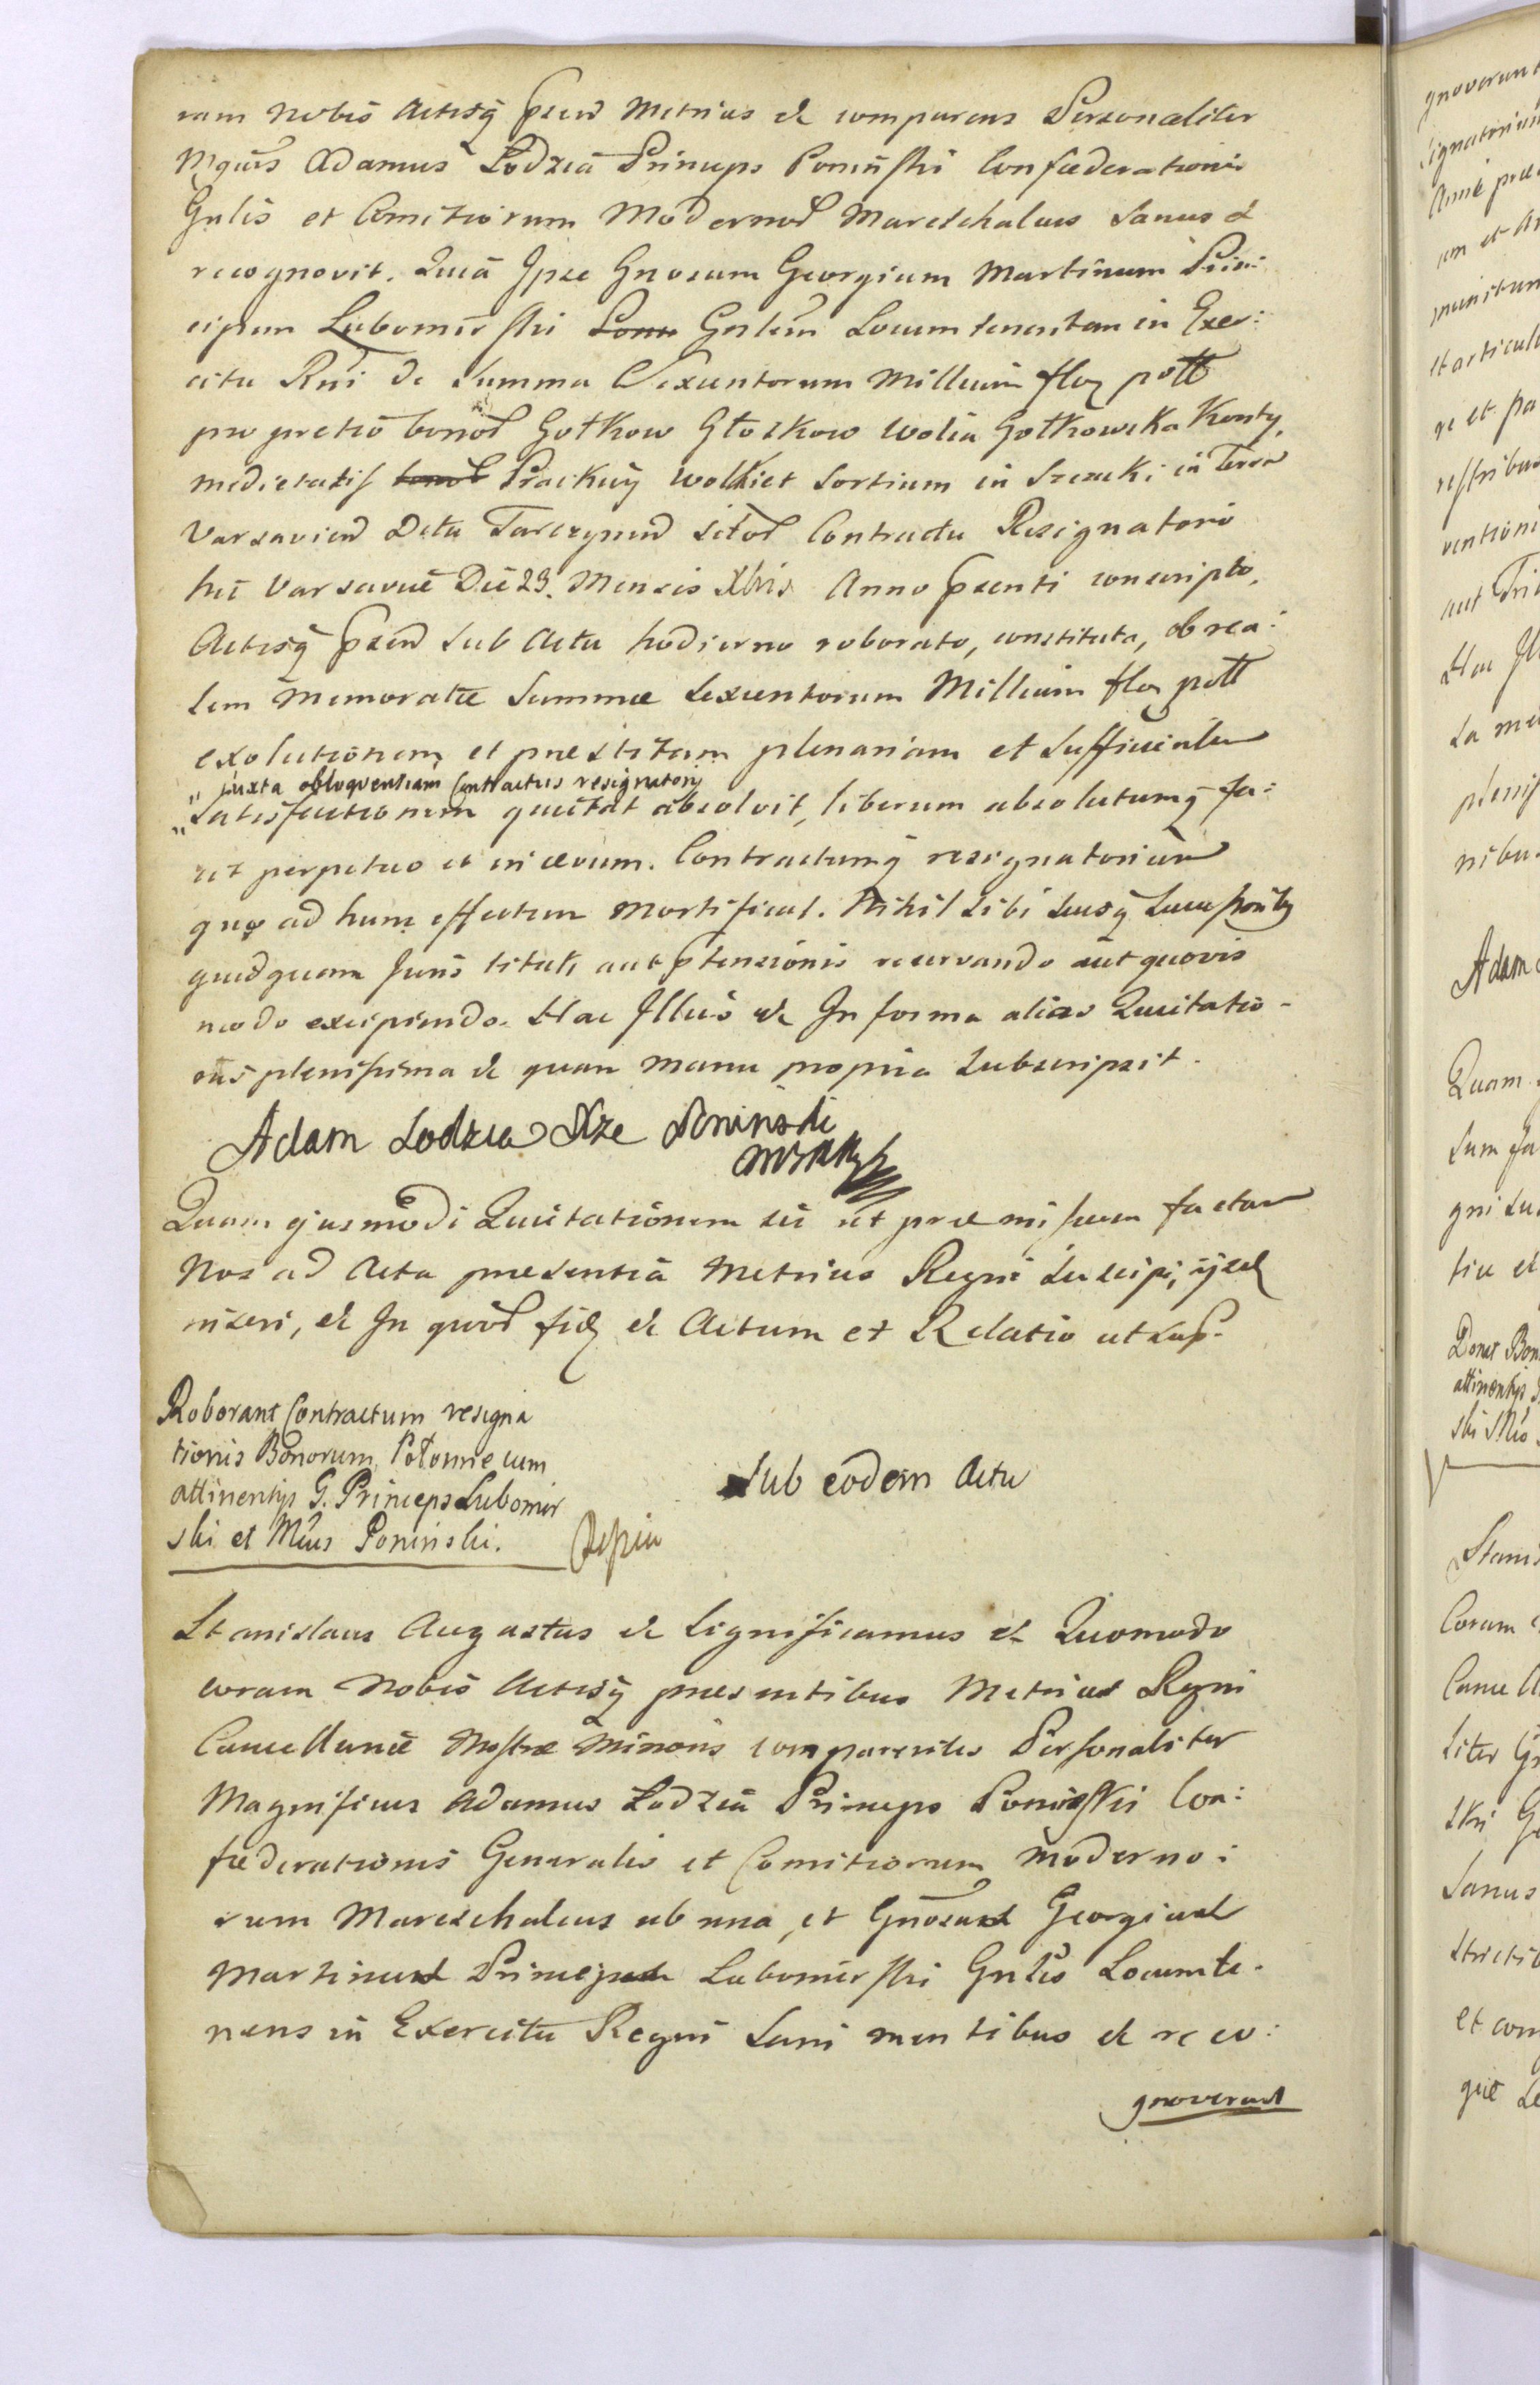 ram Nobis Actisq̃ pṡend Metrices & comparens Personaliter
Mgcus Adamus Lodzia Princeps Poninski Confæderationis
Gnlis et Comitiorum Modernor Mareschalcus Sanus &
recognovit. Quia Ipse Gnosum Georgium Martinum Prin:
cipem Lubomirski Gnlem Locum tenentem in Exer:
citu Rni de Summa Sexcentorum Millium flor poll
pro pretio bonor Gołkow Głoskow Wolia Gołkowska Konty,
medietatis Prackuy Wolkiet Sortium in Szczuki in Terra
Varsavien Dctu Tarczynen sitor Contractu Resignatorio
hic Varsaviæ Die 23. Mensis Xbris Anno psenti conscripto,
Actisq̃ psend sub Actu hodierno roborato, constituta, ob rea:
lem memoratæ Summæ sexcentorum Millium flor poll
exolutionem et præstitam plenariam et sufficientem
" juxta obloquentiam Contractus resignatorij
" Satisfactionem quietat absolvit, liberum absolutumq̃ fa:
cit perpetuo et in ævum. Contractumq̃ resignatorium
quo ad hunc effectum Mortificat. Nihil sibi suisq̃ Succesorib9
quidquam Juris tituli aut ptensionis reservando aut quovis
modo excipiendo. Hac Illius & In forma alias Quietatio-
nis plenissima & quam manu propria subscripsit.
Adam Lodzia Xże Poninski
Quam ejusmodi Quietationem sic ut præmissum factam
Nos ad Acta præsentia Metrices Regni suscipi, ijsd
inseri, & In quor fid & Actum et Relatio ut sup.
Roborant Contractum resigna
tionis Bonorum Połomie cum
attinentijs G. Princeps Lubomir
ski et Mcus Poninski.
Sub eodem Actu
Stanislaus Augustus & Significamus & Quomodo
coram Nobis Actisq̃ præsentibus Metrices Regni
Cancellariæ Nostræ Minoris comparentes Personaliter
Magnificus Adamus Lodzia Princeps Poninski Con:
fæderationis Generalis et Comitiorum Moderno:
rum Mareschalcus ab una, et Gnosus Georgius
Martinus Princeps Lubomirski Gnlis Locumte-
nens in Exercitu Regni Sani mentibus & reco:
gnoverunt